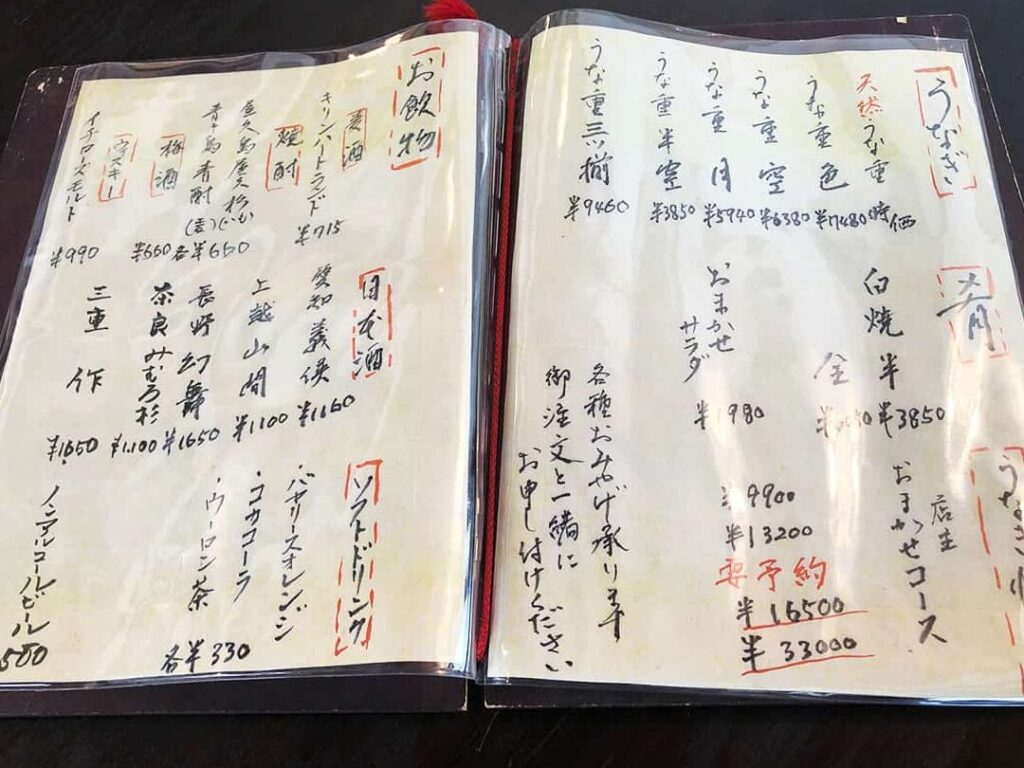 うなぎ
天然うな重 時価
うな重 色 ¥7480
うな重 空 ¥6380
うな重 月 ¥5940
うな重半空 ¥3850
うな重三ッ揃 ¥9460
肴
白焼 半 ¥3850
全
おまかせサラダ ¥1980
店主
おまかせコース
¥9900
¥13200
要予約
¥16500
¥33000
各種おみやげ承ります
御注文と一緒に
お申し付けください
お飲物
麦酒
キリンハートランド ¥715
焼酎
屋久島屋久杉
青ヶ島青酎(麦) 各¥660
梅酒 ¥660
ウヰスキー
イチローズモルト ¥990
日本酒
愛知 義侠 ¥1160
上越 山間 ¥1100
長野 幻舞 ¥1650
奈良 みむろ杉 ¥1,100
三重 作 ¥1650
ソフトドリンク
・バヤリースオレンジ
・コカコーラ
・ウーロン茶
各¥330
ノンアルコールビール
500